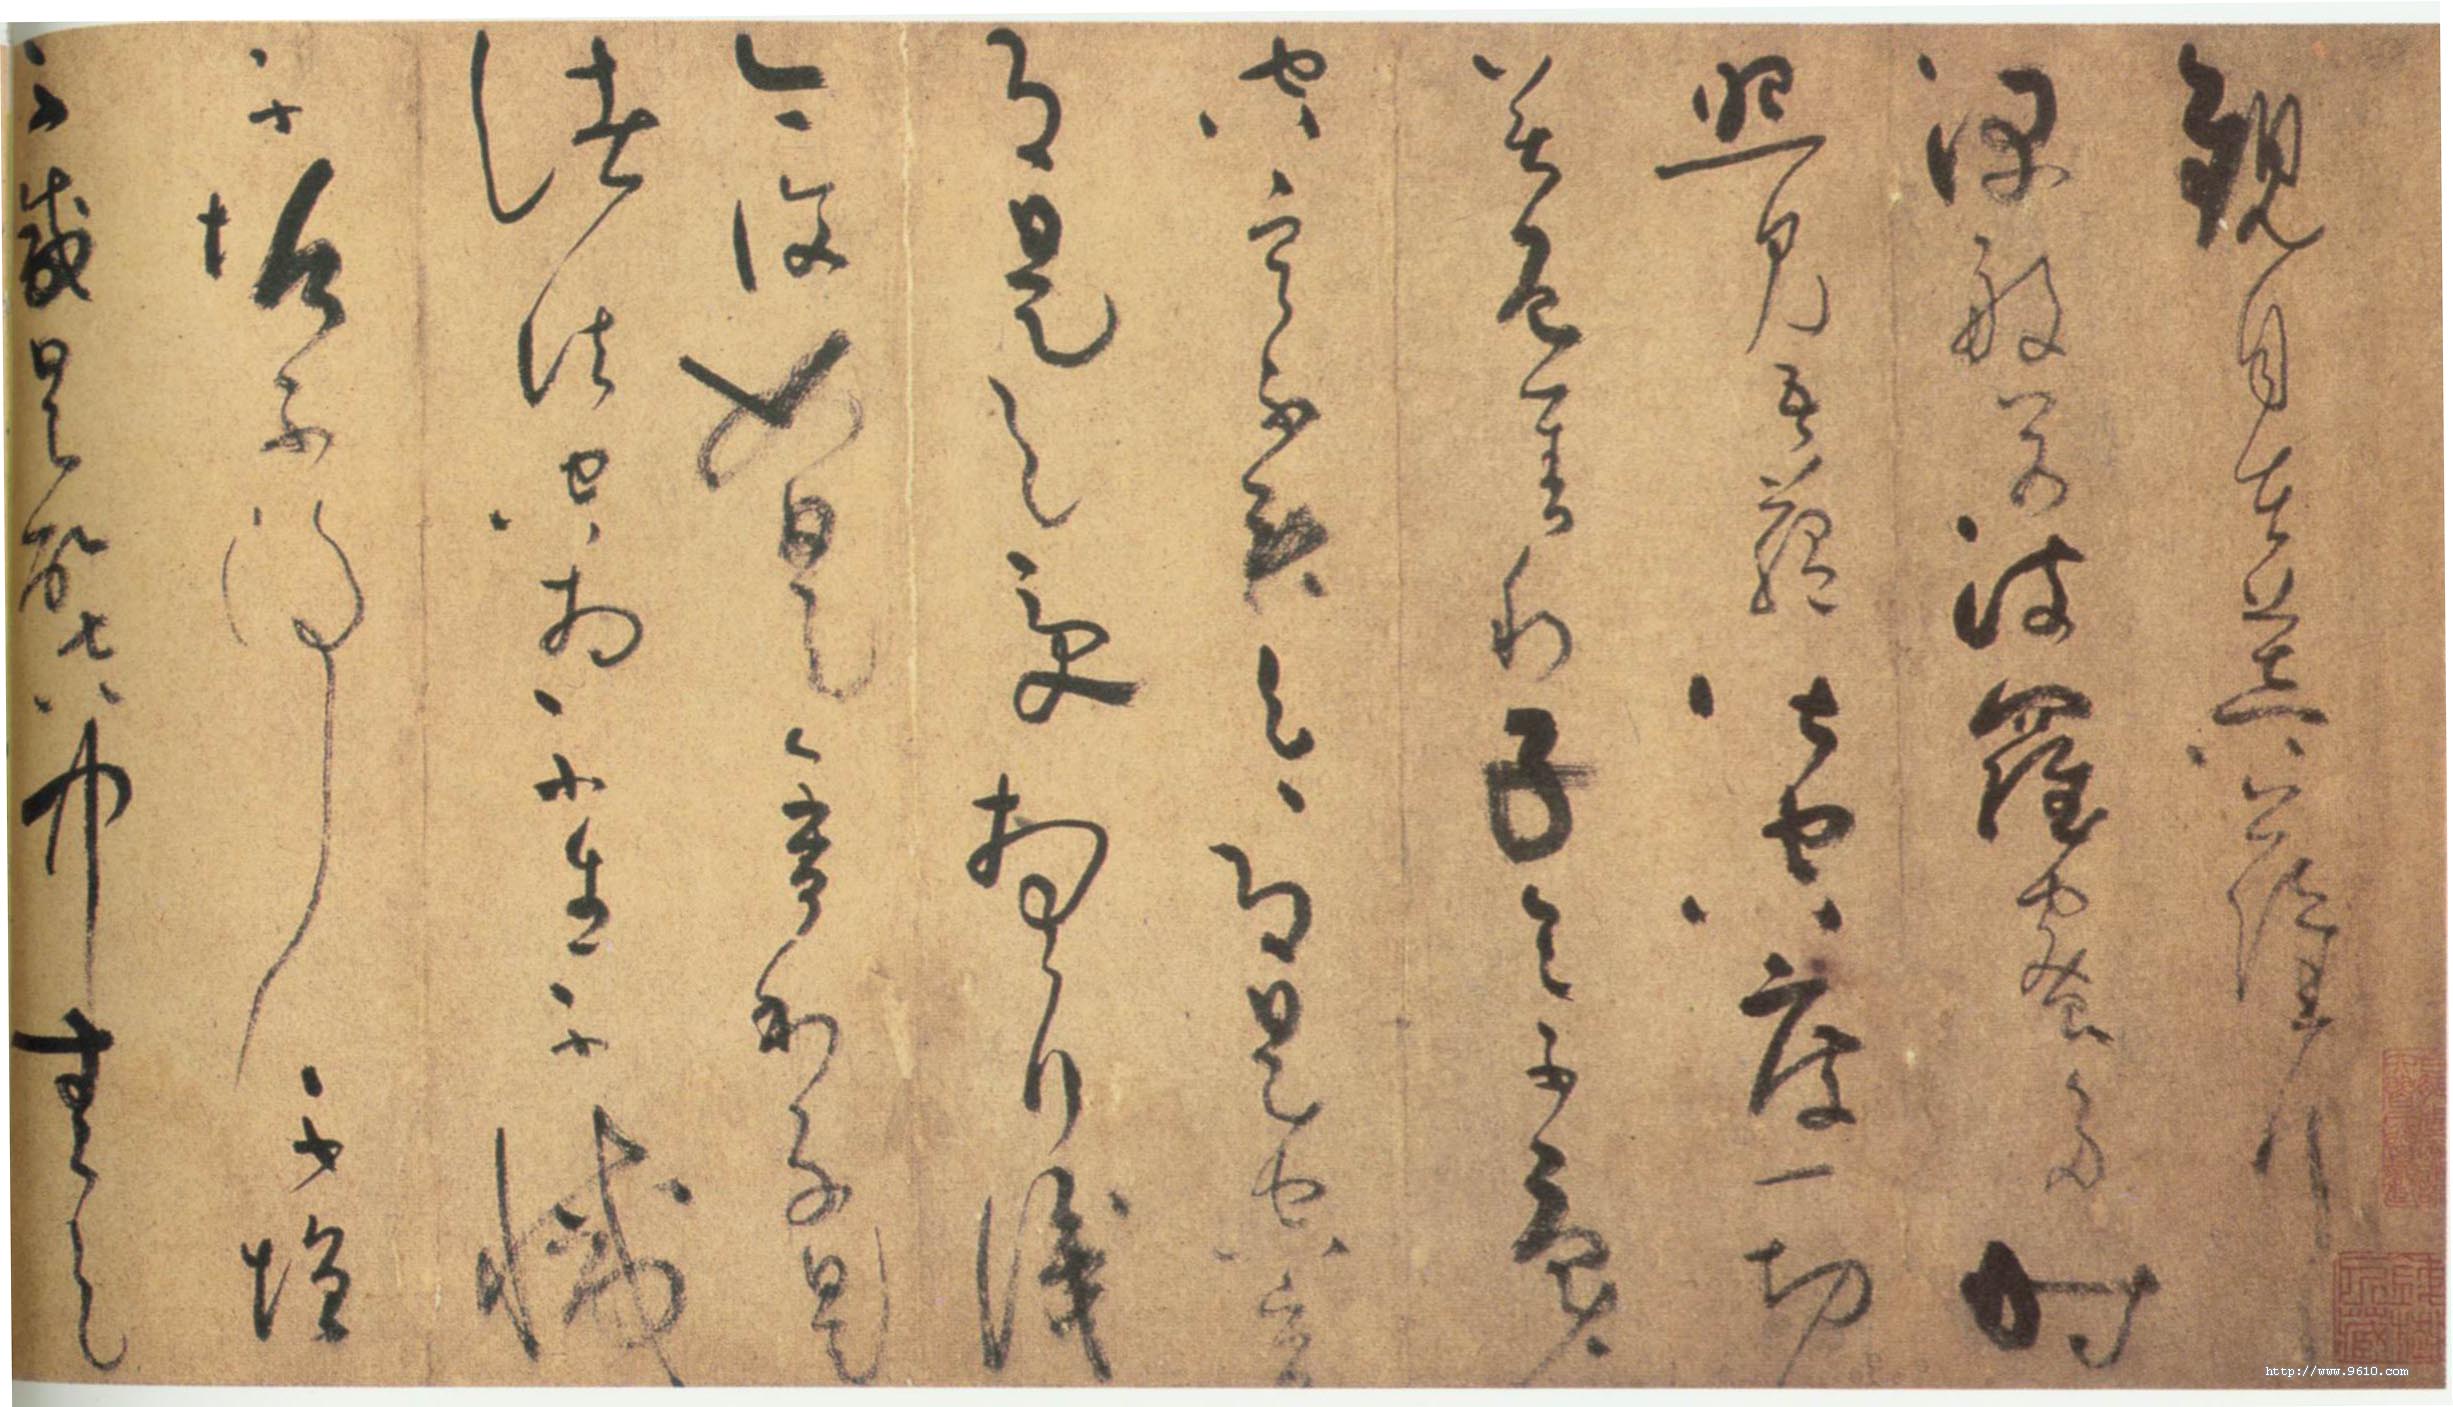 觀自在菩薩行
深般若波羅蜜多時
照見五蘊皆空度一切
苦厄舍利子色不異
空空不異色色即是空空
即是色受想行識
亦復如是舍利子是
諸法空相不生不滅
不垢不淨不增
不減是故空中無色
http://www.9610.com